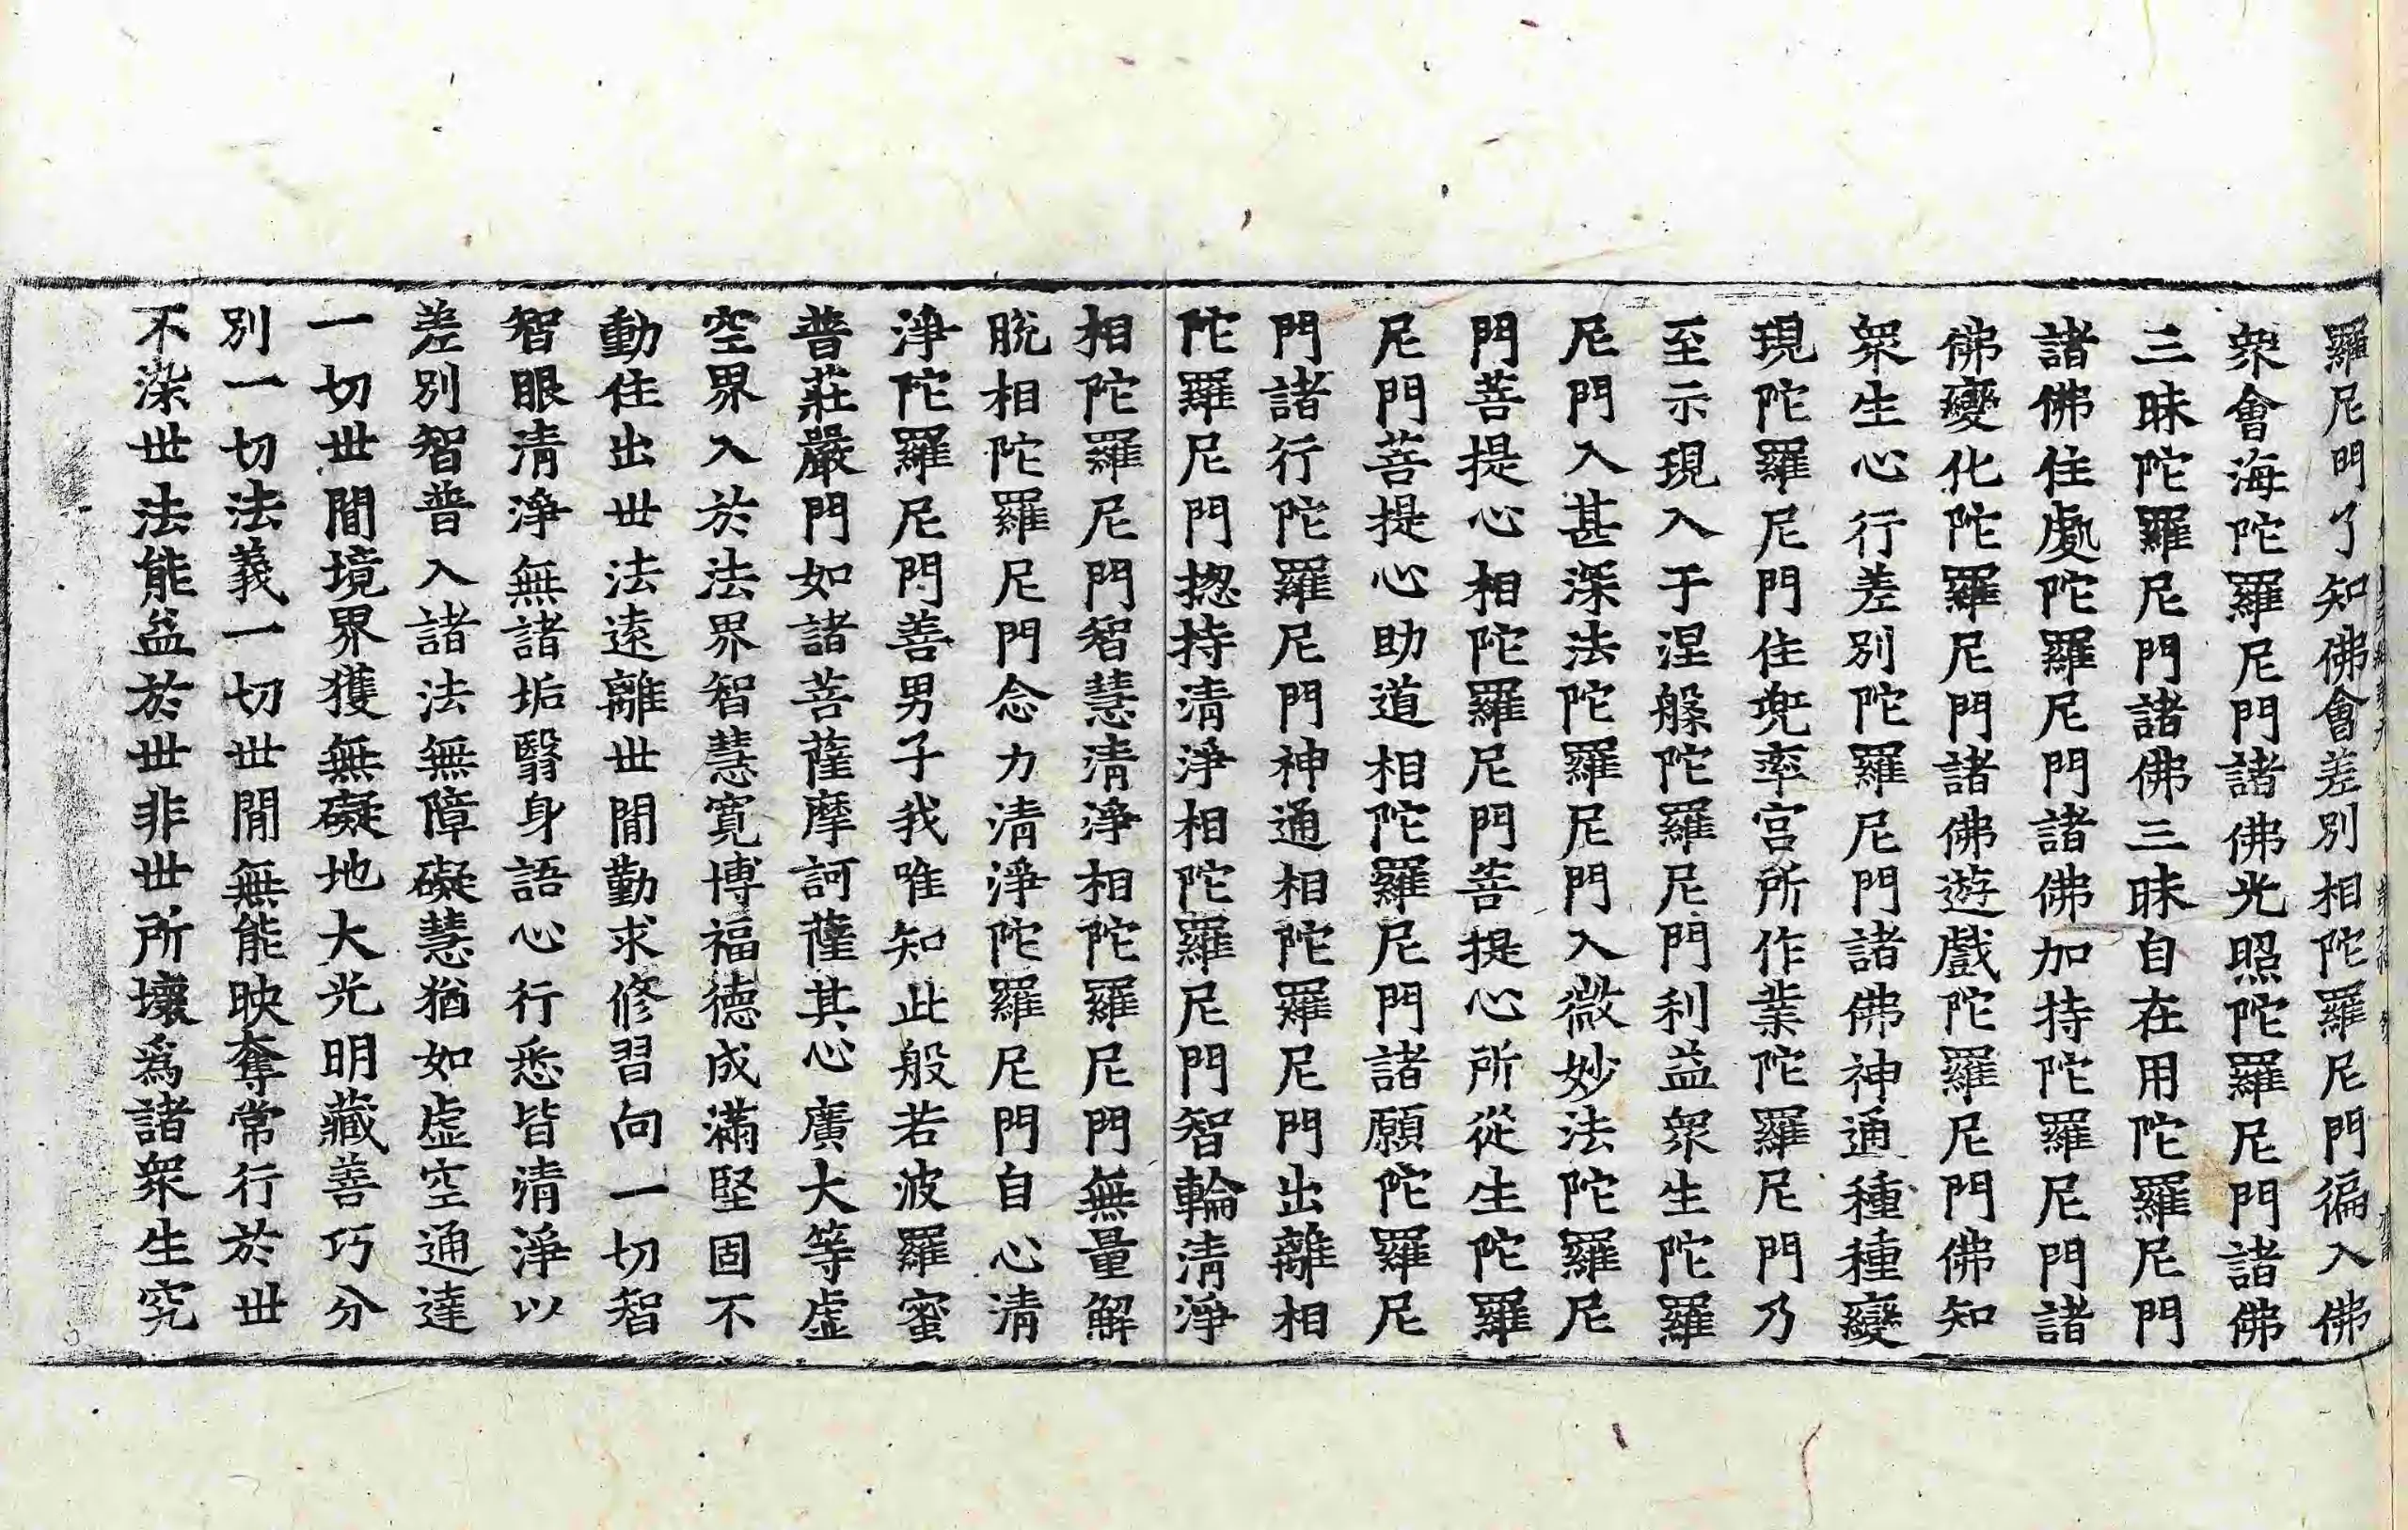 羅尼門了知佛會差別相陀羅尼門徧入佛
衆會海陀羅尼門諸佛光照陀羅尼門諸佛
三昧陀羅尼門諸佛三昧自在用陀羅尼門
諸佛住處陀羅尼門諸佛加持陀羅尼門諸
佛變化陀羅尼門諸佛遊戲陀羅尼門佛知
衆生心行差別陀羅尼門諸佛神通種種變
現陀羅尼門住兜率宮所作業陀羅尼門乃
至示現入于涅槃陀羅尼門利益衆生陀羅
尼門入甚深法陀羅尼門入微妙法陀羅尼
門菩提心相陀羅尼門菩提心所從生陀羅
尼門菩提心助道相陀羅尼門諸願陀羅尼
門諸行陀羅尼門神通相陀羅尼門出離相
陀羅尼門揔持清淨相陀羅尼門智輪清淨
相陀羅尼門智慧清淨相陀羅尼門無量解
脫相陀羅尼門念力清淨陀羅尼門自心清
淨陀羅尼門善男子我唯知此般若波羅蜜
普莊嚴門如諸菩薩摩訶薩其心廣大等虛
空界入於法界智慧寬博福德成滿堅固不
動住出世法遠離世閒勤求修習向一切智
智眼清淨無諸垢翳身語心行悉皆清淨以
差別智普入諸法無障礙慧猶如虛空通達
一切世閒境界獲無礙地大光明藏善巧分
別一切法義一切世閒無能映奪常行於世
不染世法能益於世非世所壞爲諸衆生究